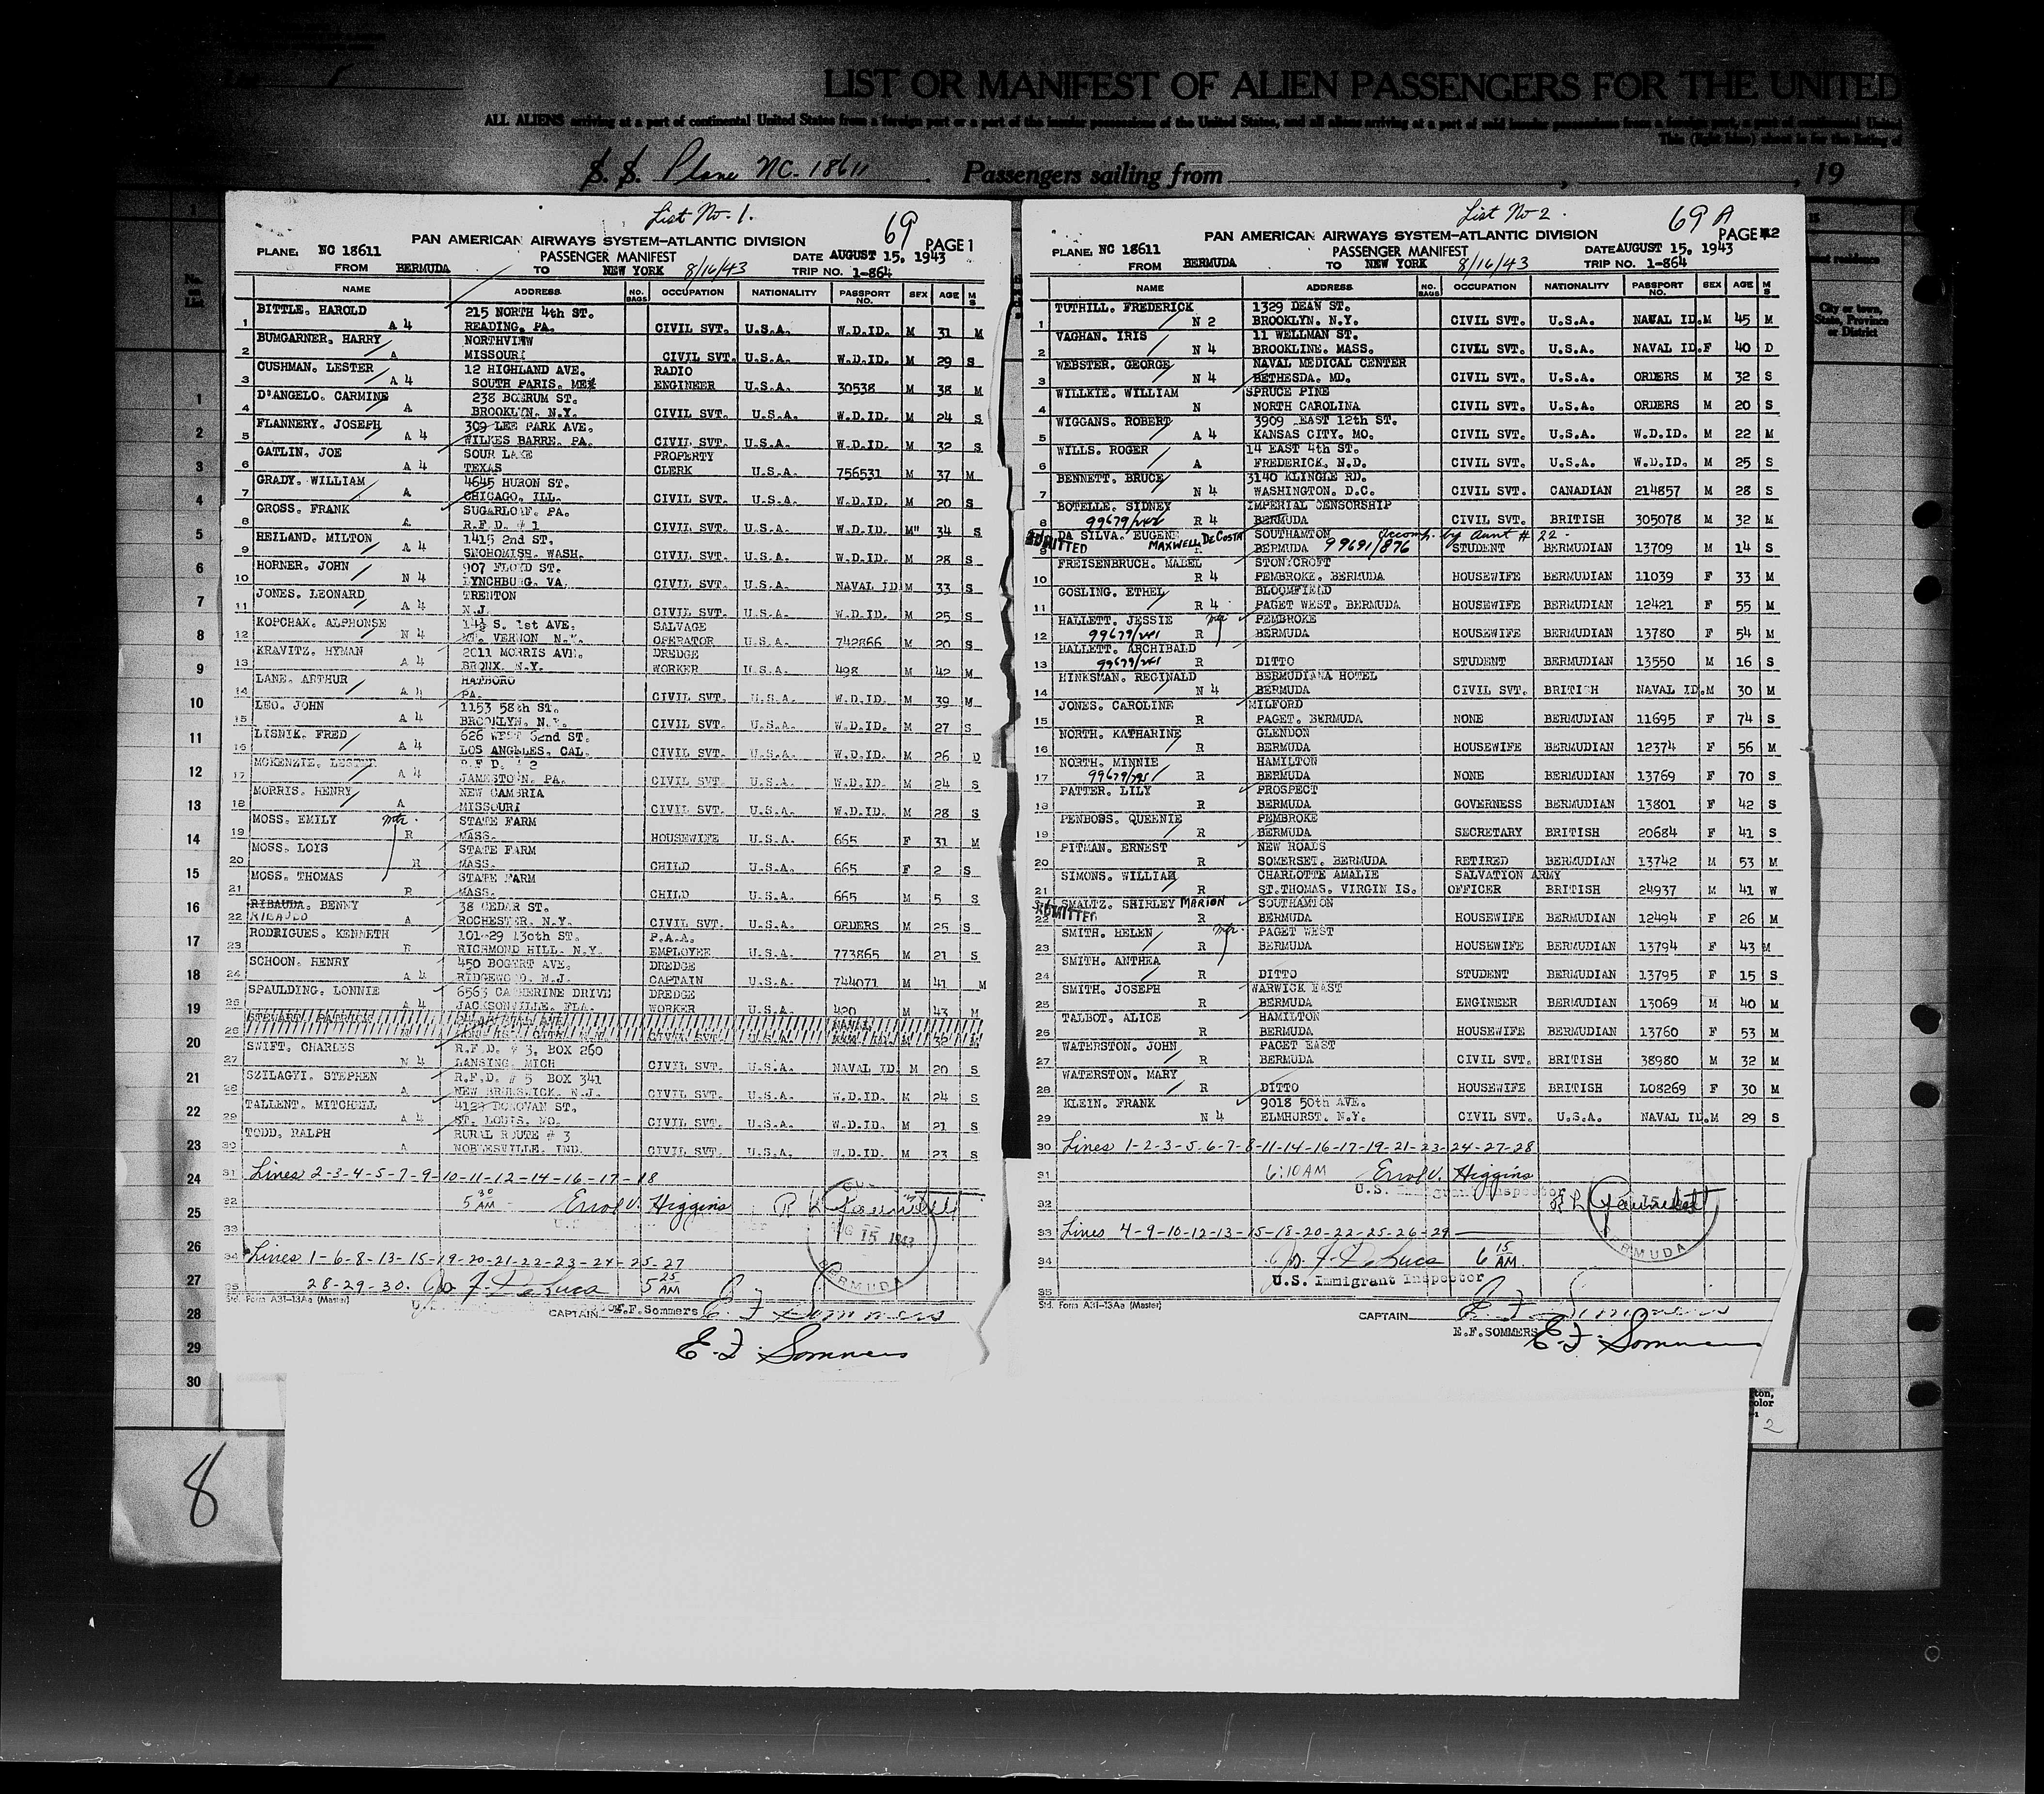 LIST OR MANIFEST OF ALIEN PASSENGERS FOR THE UNITED
ALL ALIENS arriving at a port of continental United States from a foreign port or a port of the insular possessions of the United States, and all aliens arriving at a port of said insular possessions from a foreign port, a port of continental United
This (light blue) sheet is for the listing of
S. S. Plane NC-18611 Passengers sailing from , 19
List No. 1.
69
PAN AMERICAN AIRWAYS SYSTEM—ATLANTIC DIVISION PAGE 1
PLANE. NC 18611 PASSENGER MANIFEST DATE AUGUST 15, 1943
FROM BERMUDA TO NEW YORK 8/16/43 TRIP NO. 1-864
NAME ADDRESS NO. BAGS OCCUPATION NATIONALITY PASSPORT NO. SEX AGE M S
BITTLE, HAROLD 215 NORTH 4th ST.
1 A 4 READING, PA. CIVIL SVT. U.S.A. W.D.ID. M 31 M
BUMGARNER, HARRY NORTHVIEW
2 A MISSOURI CIVIL SVT. U.S.A. W.D.ID. M 29 S
CUSHMAN, LESTER 12 HIGHLAND AVE. RADIO
3 A 4 SOUTH PARIS, ME ENGINEER U.S.A. 30538 M 38 M
D'ANGELO, CARMINE 238 BOERUM ST.
4 A BROOKLYN, N.Y. CIVIL SVT. U.S.A. W.D.ID. M 24 S
FLANNERY, JOSEPH 309 LEE PARK AVE.
5 A 4 WILKES BARRE, PA. CIVIL SVT. U.S.A. W.D.ID. M 32 S
GATLIN, JOE SOUR LAKE PROPERTY
6 A 4 TEXAS CLERK U.S.A. 756531 M 37 M
GRADY, WILLIAM 4645 HURON ST.
7 A CHICAGO, ILL. CIVIL SVT. U.S.A. W.D.ID. M 20 S
GROSS, FRANK SUGARLOAF, PA.
8 A R.F.D. # 1 CIVIL SVT. U.S.A. W.D.ID. M" 34 S
HEILAND, MILTON 1415 2nd ST.
9 A 4 SNOHOMISH, WASH. CIVIL SVT. U.S.A. W.D.ID. M 28 S
HORNER, JOHN 907 FLOYD ST.
10 N 4 LYNCHBURG, VA. CIVIL SVT. U.S.A. NAVAL ID M 33 S
JONES, LEONARD TRENTON
11 A 4 N.J. CIVIL SVT. U.S.A. W.D.ID. M 25 S
KOPCHAK, ALPHONSE 14½ S. 1st AVE. SALVAGE
12 N 4 MT. VERNON N.Y. OPERATOR U.S.A. 742866 M 20 S
KRAVITZ, HYMAN 2011 MORRIS AVE. DREDGE
13 A 4 BRONX, N.Y. WORKER U.S.A. 498 M 42 M
LANE, ARTHUR HATBORO
14 A 4 PA. CIVIL SVT. U.S.A. W.D.ID. M 39 M
LEO, JOHN 1153 58th ST.
15 A 4 BROOKLYN, N.Y. CIVIL SVT. U.S.A. W.D.ID. M 27 S
LISNIK, FRED 626 WEST 62nd ST.
16 A 4 LOS ANGELES, CAL. CIVIL SVT. U.S.A. W.D.ID. M 26 D
MCKENZIE, LESTER R.F.D. # 2
17 A 4 JAMESTOWN, PA. CIVIL SVT. U.S.A. W.D.ID. M 24 S
MORRIS, HENRY NEW CAMBRIA
18 A MISSOURI CIVIL SVT. U.S.A. W.D.ID. M 28 S
MOSS, EMILY STATE FARM
19 R MASS. HOUSEWIFE U.S.A. 665 F 31 M
MOSS, LOIS STATE FARM
20 R MASS. CHILD U.S.A. 665 F 2 S
MOSS, THOMAS STATE FARM
21 R MASS. CHILD U.S.A. 665 M 5 S
RIBAUDA, BENNY 38 CEDAR ST.
22 RIBAUDO A ROCHESTER, N.Y. CIVIL SVT. U.S.A. ORDERS M 25 S
RODRIGUES, KENNETH 101-29 130th ST. P.A.A.
23 R RICHMOND HILL, N.Y. EMPLOYEE U.S.A. 773865 M 21 S
SCHOON, HENRY 450 BOGERT AVE. DREDGE
24 A 4 RIDGEWOOD, N.J. CAPTAIN U.S.A. 744071 M 41 M
SPAULDING, LONNIE 6563 CATHERINE DRIVE DREDGE
25 A 4 JACKSONVILLE, FLA. WORKER U.S.A. 420 M 43 M
STEWART, PATRICK NAVAL
26 CIVIL SVT. U.S.A. M M
SWIFT, CHARLES R.F.D. # 3, BOX 260
27 N 4 LANSING, MICH CIVIL SVT. U.S.A. NAVAL ID M 20 S
SZILAGYI, STEPHEN R.F.D. # 5 BOX 341
28 A NEW BRUNSWICK, N.J. CIVIL SVT. U.S.A. W.D.ID. M 24 S
TALLENT, MITCHELL 4129 DONOVAN ST.
29 A 4 ST. LOUIS, MO. CIVIL SVT. U.S.A. W.D.ID. M 21 S
TODD, RALPH RURAL ROUTE # 3
30 A NOBLESVILLE, IND. CIVIL SVT. U.S.A. W.D.ID. M 23 S
31 Lines 2-3-4-5-7-9-10-11-12-14-16-17-18
32 5 30 AM Errol V. Higgins
33 15 1943
34 Lines 1-6-8-13-15-19-20-21-22-23-24-25-27
35 28-29-30. Jos. F. DeLuca 5 25 AM
BERMUDA
Std. Form A31-13Aa (Master)
CAPTAIN E.F.Sommers E F Sommers
E. F. Sommers
List No 2.
69 A
PAN AMERICAN AIRWAYS SYSTEM—ATLANTIC DIVISION PAGE 2
PLANE. NC 18611 PASSENGER MANIFEST DATE AUGUST 15, 1943
FROM BERMUDA TO NEW YORK 8/16/43 TRIP NO. 1-864
NAME ADDRESS NO. BAGS OCCUPATION NATIONALITY PASSPORT NO. SEX AGE M S
TUTHILL, FREDERICK 1329 DEAN ST.
1 N 2 BROOKLYN, N.Y. CIVIL SVT. U.S.A. NAVAL ID. M 45 M
VAGHAN, IRIS 11 WELLMAN ST.
2 N 4 BROOKLINE, MASS. CIVIL SVT. U.S.A. NAVAL ID. F 40 D
WEBSTER, GEORGE NAVAL MEDICAL CENTER
3 N 4 BETHESDA, MD. CIVIL SVT. U.S.A. ORDERS M 32 S
WILLKIE, WILLIAM SPRUCE PINE
4 N NORTH CAROLINA CIVIL SVT. U.S.A. ORDERS M 20 S
WIGGANS, ROBERT 3909 EAST 12th ST.
5 A 4 KANSAS CITY, MO. CIVIL SVT. U.S.A. W.D.ID. M 22 M
WILLS, ROGER 14 EAST 4th ST.
6 A FREDERICK, N.D. CIVIL SVT. U.S.A. W.D.ID. M 25 S
BENNETT, BRUCE 3140 KLINGLE RD.
7 N 4 WASHINGTON, D.C. CIVIL SVT. CANADIAN 214857 M 28 S
BOTELLE, SIDNEY IMPERIAL CENSORSHIP
8 R 4 BERMUDA CIVIL SVT. BRITISH 305078 M 32 M
DA SILVA, EUGENE SOUTHAMTON accomp. by aunt # 22.
ADMITTED
9 MAXWELL DeCOSTA BERMUDA 99691/876 STUDENT BERMUDIAN 13709 M 14 S
FREISENBRUCH, MABEL STONYCROFT
10 R 4 PEMBROKE, BERMUDA HOUSEWIFE BERMUDIAN 11039 F 33 M
GOSLING, ETHEL BLOOMFIELD
11 R 4 PAGET WEST, BERMUDA HOUSEWIFE BERMUDIAN 12421 F 55 M
HALLETT, JESSIE PEMBROKE
12 R BERMUDA HOUSEWIFE BERMUDIAN 13780 F 54 M
HALLETT, ARCHIBALD
13 R DITTO STUDENT BERMUDIAN 13550 M 16 S
HINKSMAN, REGINALD BERMUDIANA HOTEL
14 N 4 BERMUDA CIVIL SVT. BRITISH NAVAL ID. M 30 M
JONES, CAROLINE MILFORD
15 R PAGET, BERMUDA NONE BERMUDIAN 11695 F 74 S
NORTH, KATHARINE GLENDON
16 R BERMUDA HOUSEWIFE BERMUDIAN 12374 F 56 M
NORTH, MINNIE HAMILTON
17 R BERMUDA NONE BERMUDIAN 13769 F 70 S
PATTER, LILY PROSPECT
18 R BERMUDA GOVERNESS BERMUDIAN 13801 F 42 S
PENBOSS, QUEENIE PEMBROKE
19 R BERMUDA SECRETARY BRITISH 20684 F 41 S
PITMAN, ERNEST NEW ROADS
20 R SOMERSET, BERMUDA RETIRED BERMUDIAN 13742 M 53 M
SIMONS, WILLIAM CHARLOTTE AMALIE SALVATION ARMY
21 R ST.THOMAS, VIRGIN IS. OFFICER BRITISH 24937 M 41 W
SMALTZ, SHIRLEY MARION SOUTHAMTON
ADMITTED
22 R BERMUDA HOUSEWIFE BERMUDIAN 12494 F 26 M
SMITH, HELEN PAGET WEST
23 R BERMUDA HOUSEWIFE BERMUDIAN 13794 F 43 M
SMITH, ANTHEA
24 R DITTO STUDENT BERMUDIAN 13795 F 15 S
SMITH, JOSEPH WARWICK EAST
25 R BERMUDA ENGINEER BERMUDIAN 13069 M 40 M
TALBOT, ALICE HAMILTON
26 R BERMUDA HOUSEWIFE BERMUDIAN 13760 F 53 M
WATERSTON, JOHN PAGET EAST
27 R BERMUDA CIVIL SVT. BRITISH 38980 M 32 M
WATERSTON, MARY
28 R DITTO HOUSEWIFE BRITISH L08269 F 30 M
KLEIN, FRANK 9018 50th AVE.
29 N 4 ELMHURST, N.Y. CIVIL SVT. U.S.A. NAVAL ID. M 29 S
30 Lines 1-2-3-5-6-7-8-11-14-16-17-19-21-23-24-27-28
31 6:10 AM Errol V. Higgins
U.S. Immigrant Inspector
32
33 Lines 4-9-10-12-13-15-18-20-22-25-26-29
34 Jos. F. DeLuca 6 15 AM.
U.S. Immigrant Inspector
BERMUDA
35
Std. Form A31-13Aa (Master)
CAPTAIN E F Sommers
E.F.SOMMERS E. F. Sommers
City or town, State, Province or District
1
2
3
4
5
6
7
8
9
10
11
12
13
14
15
16
17
18
19
20
21
22
23
24
25
26
27
28
29
30
2
8